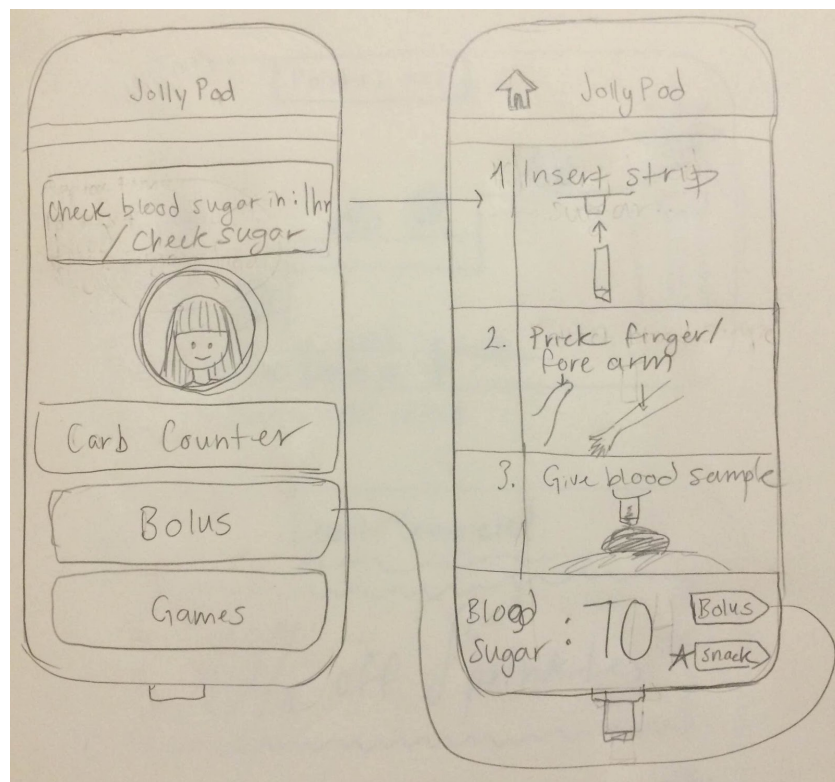 Jolly Pod
Check blood sugar in: 1hr
/ Check sugar
Carb Counter
Bolus
Games
Jolly Pod
1 Insert strip
2. Prick finger/
fore arm
3. Give blood sample
Blood
Sugar : 70
Bolus
snack